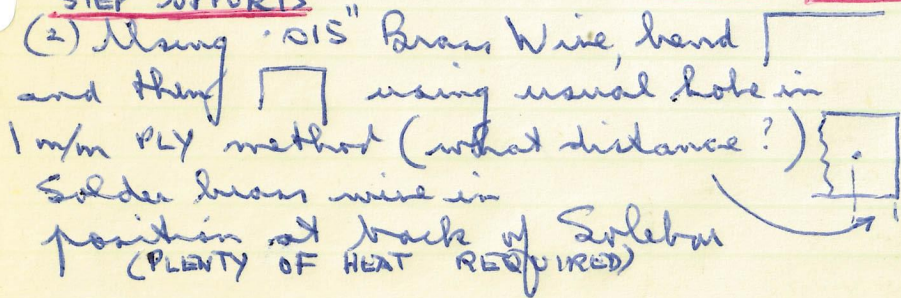 STEP SUPPORTS
(2) Using .015" Brass Wire, bend
and then using usual hole in
1 m/m PLY method (what distance?)
Solder brass wire in
position at back of Solebar
(PLENTY OF HEAT REQUIRED)